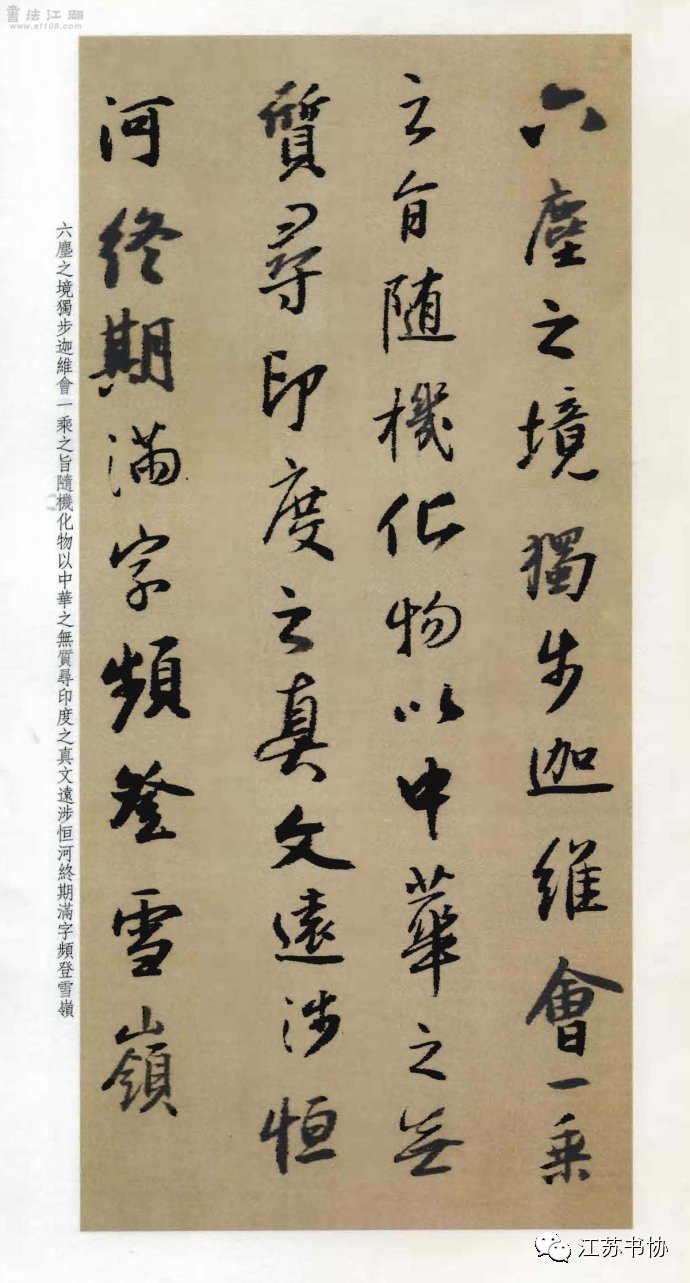 书法江湖
www.sf108.com
六塵之境獨步迦維會一乗
之旨随機化物以中華之無
質尋印度之真文遠涉恒
河終期滿字頻登雪嶺
六塵之境獨步迦維會一乘之旨隨機化物以中華之無質尋印度之真文遠涉恒河終期滿字頻登雪嶺
江苏书协